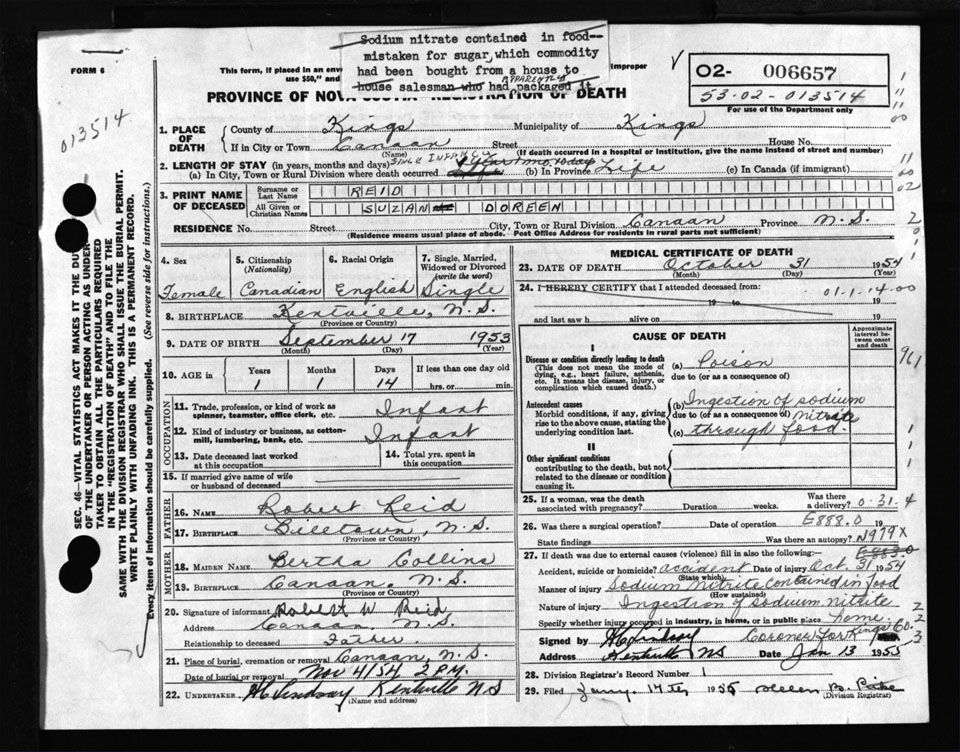 Sodium nitrate contained in food--
mistaken for sugar, which commodity
had been bought from a house to
APPARENTLY
house salesman who had packaged it.
FORM 6
This form, if placed in an enve
Improper
use $50," and
PROVINCE OF NOVA SCOTIA REGISTRATION OF DEATH
O2- 006657
53-02-013514
For use of the Department only
013514
SEC. 46—VITAL STATISTICS ACT MAKES IT THE DUTY
OF THE UNDERTAKER OR PERSON ACTING AS UNDER-
TAKER TO OBTAIN ALL THE PARTICULARS REQUIRED
IN THE "REGISTRATION OF DEATH" AND TO FILE THE
SAME WITH THE DIVISION REGISTRAR WHO SHALL ISSUE THE BURIAL PERMIT.
WRITE PLAINLY WITH UNFADING INK. THIS IS A PERMANENT RECORD.
Every item of information should be carefully supplied. (See reverse side for instructions.)
1. PLACE OF DEATH
County of Kings Municipality of Kings
If in City or Town Canaan Street House No.
(Name) (If death occurred in a hospital or institution, give the name instead of street and number)
2. LENGTH OF STAY (in years, months and days) SINCE INFANCY
(a) In City, Town or Rural Division where death occurred (b) In Province Life (c) In Canada (if immigrant)
3. PRINT NAME OF DECEASED
Surname or Last Name REID
All Given or Christian Names SUZAN DOREEN
RESIDENCE No. Street City, Town or Rural Division Canaan Province N.S.
(Residence means usual place of abode. Post Office Address for residents in rural parts not sufficient)
4. Sex
Female
5. Citizenship (Nationality)
Canadian
6. Racial Origin
English
7. Single, Married, Widowed or Divorced (write the word)
Single
8. BIRTHPLACE Kentville, N.S.
(Province or Country)
9. DATE OF BIRTH September 17 1953
(Month) (Day) (Year)
10. AGE in
Years Months Days If less than one day
1 1 14 hrs. or min.
OCCUPATION
11. Trade, profession, or kind of work as spinner, teamster, office clerk, etc. Infant
12. Kind of industry or business, as cotton-mill, lumbering, bank, etc. Infant
13. Date deceased last worked at this occupation
14. Total yrs. spent in this occupation
15. If married give name of wife or husband of deceased
FATHER
16. NAME Robert Reid
17. BIRTHPLACE Billtown, N.S.
(Province or Country)
MOTHER
18. MAIDEN NAME Bertha Collins
19. BIRTHPLACE Canaan, N.S.
(Province or Country)
20. Signature of informant Robert W Reid
Address Canaan, N.S.
Relationship to deceased Father.
21. Place of burial, cremation or removal Canaan, N.S.
Date of burial or removal Nov 4/54 2 P.M.
22. UNDERTAKER H C Lindsay Kentville N.S
(Name and address)
MEDICAL CERTIFICATE OF DEATH
23. DATE OF DEATH October 31 1954
(Month) (Day) (Year)
24. I HEREBY CERTIFY that I attended deceased from:
01-1-14-00
19 to 19
and last saw h alive on 19
CAUSE OF DEATH
Approximate interval between onset and death
I
Disease or condition directly leading to death
(This does not mean the mode of dying, e.g., heart failure, asthenia, etc. It means the disease, injury, or complication which caused death.)
(a) Poison
due to (or as a consequence of)
Antecedent causes
Morbid conditions, if any, giving rise to the above cause, stating the underlying condition last.
(b) Ingestion of sodium
due to (or as a consequence of) nitrate
(c) through food.
II
Other significant conditions
contributing to the death, but not related to the disease or condition causing it.
961
25. If a woman, was the death associated with pregnancy? Duration weeks. Was there a delivery? 0-31.4
26. Was there a surgical operation? Date of operation E888.0 19
State findings Was there an autopsy? N979X
E883.0
27. If death was due to external causes (violence) fill in also the following:—
Accident, suicide or homicide? accident Date of injury Oct. 31 1954
(State which)
Manner of injury Sodium Nitrite contained in food
(How sustained)
Nature of injury Ingestion of sodium nitrite
Specify whether injury occurred in industry, in home, or in public place home.
Signed by H C Lindsay Coroner for Kings Co.
Address Kentville NS Date Jan 13 1955
28. Division Registrar's Record Number 1
29. Filed Jany. 14th 1955 Helen B. Pike
(Division Registrar)